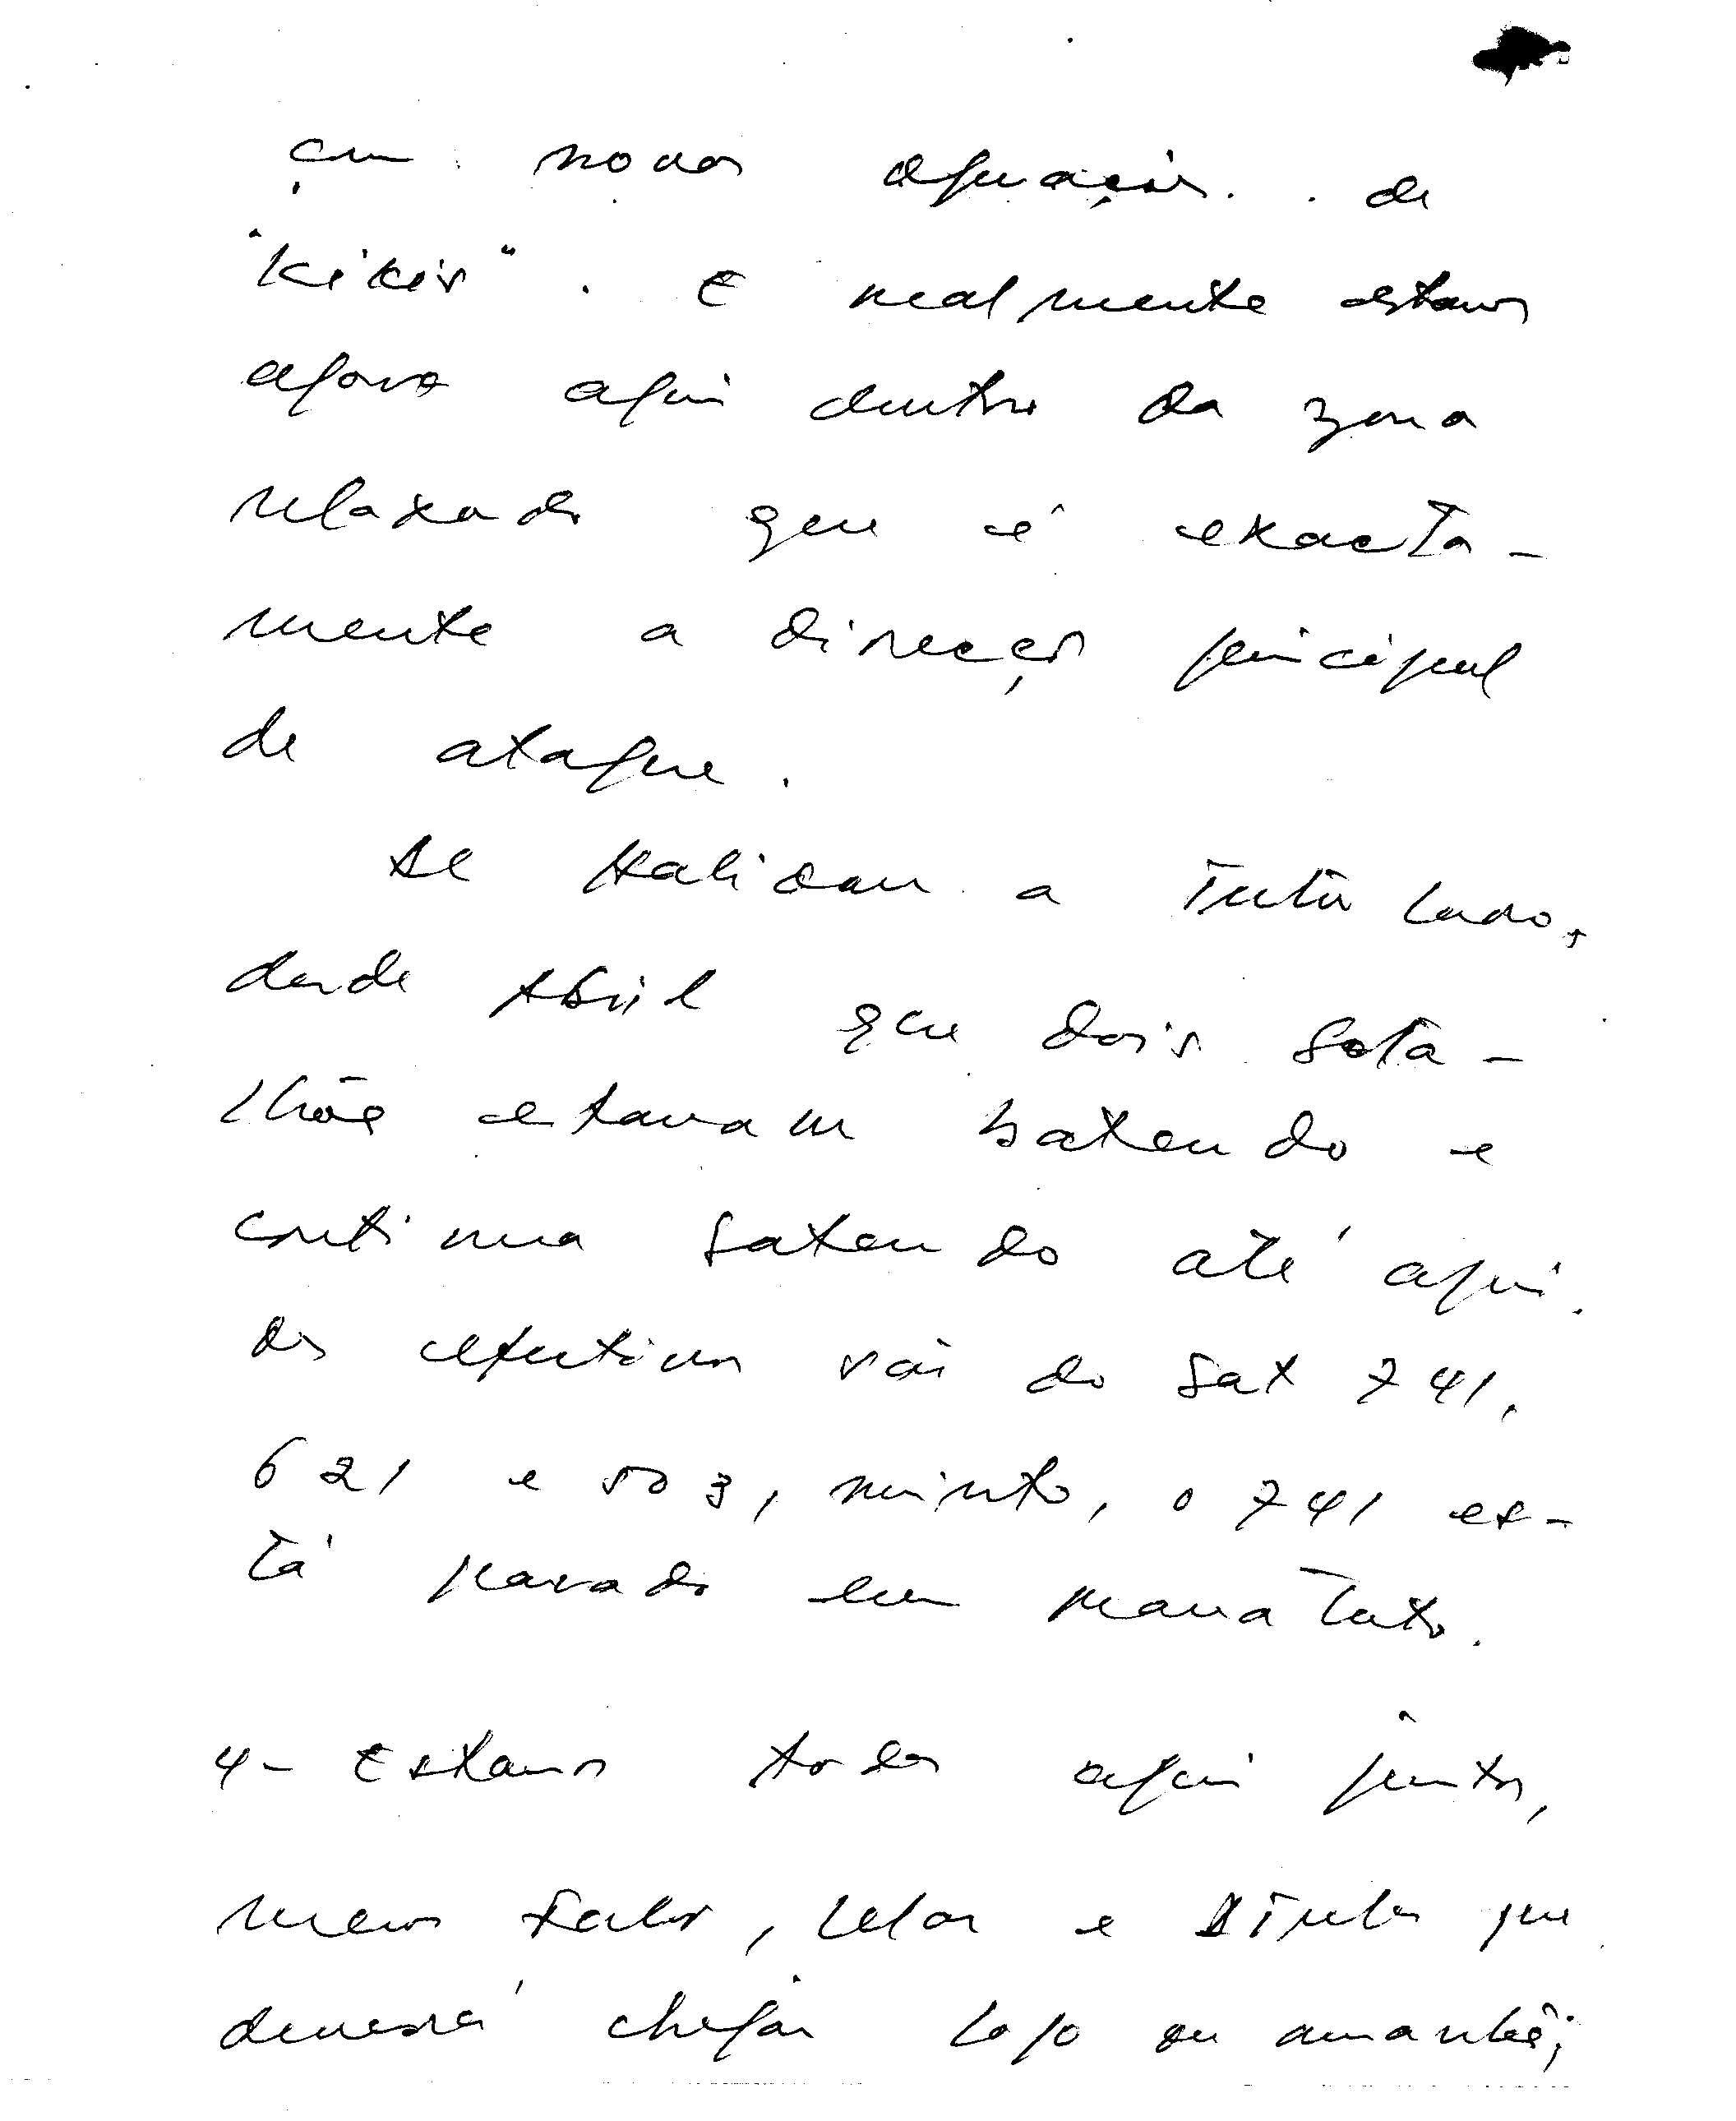 çam novas operações de
"kikis". E realmente estamos
agora aqui dentro da zona
relaxada que é exacta-
mente a direcção principal
de ataque.
Se Halidan a Tutu lado,
desde Abril que dois bata-
lhões estavam batendo e
continua batendo até aqui.
Os efectivos vai do bat 741,
621 e 503, minto, o 741 es-
tá parado em Manatuto.
4- Estamos todos aqui juntos,
menos Falur, Lelo e que
deverá chegar logo ou amanhã;